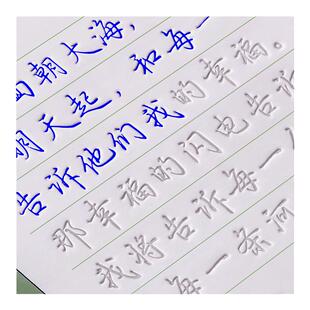 面朝大海，
明天起，和每一
告诉他们我的幸福。
那幸福的闪电告诉
我将告诉每一
每一条河